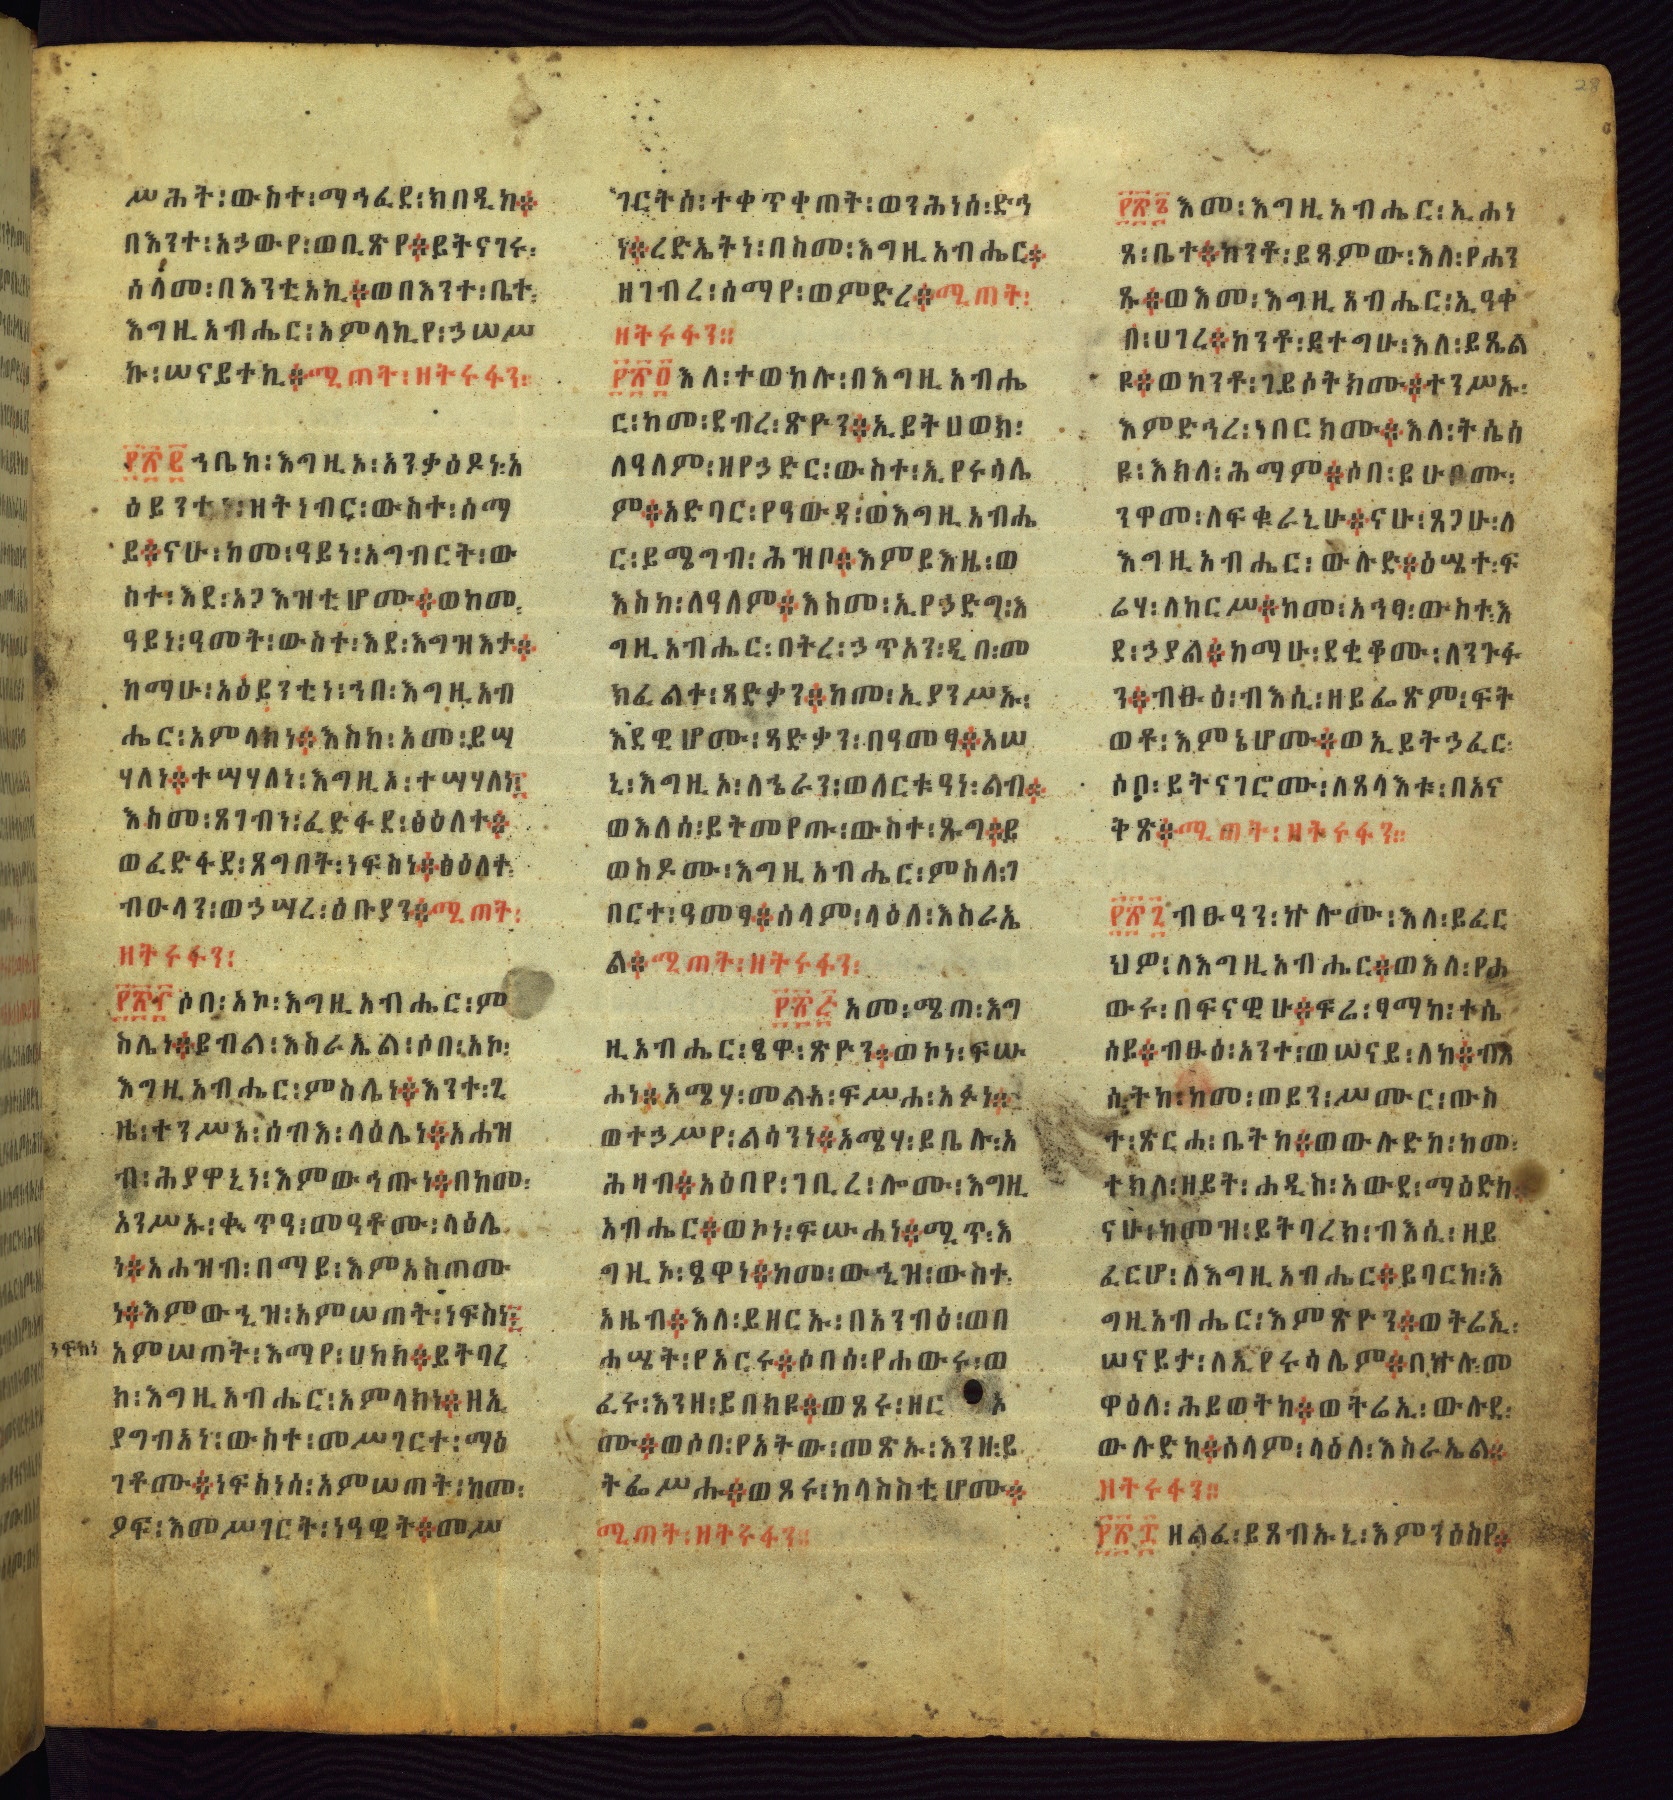 ሥሕት፡ውስተ፡ማኅፈደ፡ክበዲከ፨
በእንተ፡አኃውየ፡ወቢጽየ፨ይትናገሩ፡
ሰላመ፡በእንቲአኪ፨ወበእንተ፡ቤተ፡
እግዚአብሔር፡አምላኪየ፡ኃሠሥ
ኩ፡ሠናይተኪ፨ሚጠት፡ዘትሩፋን፡
፻፳፪ ኀቤከ፡እግዚኦ፡አንቃዕዶነ፡አ
ዕይንተነ፡ዘትነብር፡ውስተ፡ሰማ
ይ፨ናሁ፡ከመ፡ዓይነ፡አግብርት፡ው
ስተ፡እደ፡አጋእዝቲሆሙ፨ወከመ፡
ዓይነ፡ዓመት፡ውስተ፡እደ፡እግዝእታ፨
ከማሁ፡አዕይንቲነ፡ኀበ፡እግዚአብ
ሔር፡አምላክነ፨እስከ፡አመ፡ይሣ
ሃለነ፨ተሣሃለነ፡እግዚኦ፡ተሣሃለነ፤
እስመ፡ጸገብነ፡ፈድፋደ፡ፅዕለተ፨
ወፈድፋደ፡ጸግበት፡ነፍስነ፨ፅዕለተ፡
ብዑላን፡ወኃሣረ፡ዕቡያን፨ሚጠት፡
ዘትሩፋን፡
፻፳፫ ሶበ፡አኮ፡እግዚአብሔር፡ም
ስሌነ፨ይብል፡እስራኤል፡ሶበ፡አኮ፡
እግዚአብሔር፡ምስሌነ፨እንተ፡ጊ
ዜ፡ተንሥአ፡ሰብእ፡ላዕሌነ፨አሐዝ
ብ፡ሕያዋኒነ፡እምውኅጡነ፨በከመ፡
አንሥኡ፡ቍጥዓ፡መዓቶሙ፡ላዕሌ
ነ፨አሐዝብ፡በማይ፡እምአስጠሙ
ነ፨እምውኂዝ፡አምሠጠት፡ነፍስነ፤
ነፍስነ
አምሠጠት፡እማየ፡ሀከክ፨ይትባረ
ክ፡እግዚአብሔር፡አምላክነ፨ዘኢ
ያግብአነ፡ውስተ፡መሥገርተ፡ማዕ
ገቶሙ፨ነፍስነሰ፡አምሠጠት፡ከመ፡
ዖፍ፡እመሥገርት፡ነዓዊት፨መሥ
ገርትሰ፡ተቀጥቀጠት፡ወንሕነሰ፡ድኅ
ነ፨ረድኤትነ፡በስመ፡እግዚአብሔር፨
ዘገብረ፡ሰማየ፡ወምድረ፨ሚጠት፡
ዘትሩፋን።
፻፳፬ እለ፡ተወከሉ፡በእግዚአብሔ
ር፡ከመ፡ደብረ፡ጽዮን፨ኢይትሀወክ፡
ለዓለም፡ዘየኃድር፡ውስተ፡ኢየሩሳሌ
ም፨አድባር፡የዓውዳ፡ወእግዚአብሔ
ር፡ይሜግብ፡ሕዝቦ፨እምይእዜ፡ወ
እስከ፡ለዓለም፨እስመ፡ኢየኃድግ፡እ
ግዚአብሔር፡በትረ፡ኃጥአን፡ዲበ፡መ
ክፈልተ፡ጻድቃን፨ከመ፡ኢያንሥኡ፡
እደዊሆሙ፡ጻድቃን፡በዓመፃ፨አሠ
ኒ፡እግዚኦ፡ለኄራን፡ወለርቱዓነ፡ልብ፨
ወእለሰ፡ይትመየጡ፡ውስተ፡ጹግ፨ይ
ወስዶሙ፡እግዚአብሔር፡ምስለ፡ገ
በርተ፡ዓመፃ፨ሰላም፡ላዕለ፡እስራኤ
ል፨ሚጠት፡ዘትሩፋን፡
፻፳፭ አመ፡ሜጠ፡እግ
ዚአብሔር፡ፄዋ፡ጽዮን፨ወኮነ፡ፍሡ
ሐነ፨አሜሃ፡መልአ፡ፍሥሐ፡አፉነ፨
ወተኃሥየ፡ልሳንነ፨አሜሃ፡ይቤሉ፡አ
ሕዛብ፨አዕበየ፡ገቢረ፡ሎሙ፡እግዚ
አብሔር፨ወኮነ፡ፍሡሐነ፨ሚጥ፡እ
ግዚኦ፡ፄዋነ፨ከመ፡ውኂዝ፡ውስተ፡
አዜብ፨እለ፡ይዘርኡ፡በአንብዕ፡ወበ
ሐሤት፡የአርሩ፨ሶበሰ፡የሐውሩ፡ወ
ፈሩ፡እንዘ፡ይበክዩ፨ወጾሩ፡ዘርኦ
ሙ፨ወሶበ፡የአትው፡መጽኡ፡እንዘ፡ይ
ትፌሥሑ፨ወጾሩ፡ከላስስቲሆሙ፨
ሚጠት፡ዘትሩፋን።
፻፳፮ እመ፡እግዚአብሔር፡ኢሐነ
ጸ፡ቤተ፨ከንቶ፡ይጻምው፡እለ፡የሐን
ጹ፨ወእመ፡እግዚአብሔር፡ኢዓቀ
በ፡ሀገረ፨ከንቶ፡ይተግሁ፡እለ፡ይጼል
ዩ፨ወከንቶ፡ገይሶትክሙ፨ተንሥኡ፡
እምድኅረ፡ነበርክሙ፨እለ፡ትሴሰ
ዩ፡እክለ፡ሕማም፨ሶበ፡ይሁቦሙ፡
ንዋመ፡ለፍቁራኒሁ፨ናሁ፡ጸጋሁ፡ለ
እግዚአብሔር፡ውሉድ፨ዕሤተ፡ፍ
ሬሃ፡ለከርሥ፨ከመ፡አኅፃ፡ውስተ፡እ
ደ፡ኃያል፨ከማሁ፡ደቂቆሙ፡ለንጉፋ
ን፨ብፁዕ፡ብእሲ፡ዘይፌጽም፡ፍት
ወቶ፡እምኔሆሙ፨ወኢይትኃፈር፡
ሶበ፡ይትናገሮሙ፡ለጸላእቱ፡በአና
ትጽ፨ሚጠት፡ዘትሩፋን።
፻፳፯ ብፁዓን፡ኵሎሙ፡እለ፡ይፈር
ህዎ፡ለእግዚአብሔር፨ወእለ፡የሐ
ውሩ፡በፍናዊሁ፨ፍሬ፡ፃማከ፡ተሴ
ሰይ፨ብፁዕ፡አንተ፡ወሠናይ፡ለከ፨ብእ
ሲትከ፡ከመ፡ወይን፡ሥሙር፡ውስ
ተ፡ጽርሐ፡ቤትከ፨ወውሉድከ፡ከመ፡
ተክለ፡ዘይት፡ሐዲስ፡አውደ፡ማዕድከ፨
ናሁ፡ከመዝ፡ይትባረክ፡ብእሲ፡ዘይ
ፈርሆ፡ለእግዚአብሔር፨ይባርከ፡እ
ግዚአብሔር፡እምጽዮን፨ወትሬኢ፡
ሠናይታ፡ለኢየሩሳሌም፨በኵሉ፡መ
ዋዕለ፡ሕይወትከ፨ወትሬኢ፡ውሉደ፡
ውሉድከ፨ሰላም፡ላዕለ፡እስራኤል፨
ዘትሩፋን።
፻፳፰ ዘልፈ፡ይጸብኡኒ፡እምንዕስየ፨